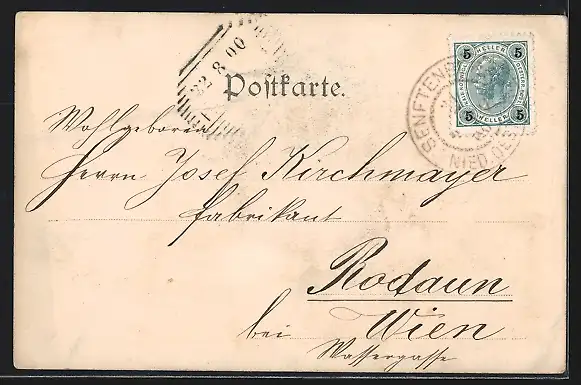 22 8 00
Postkarte.
5 HELLER 5
5 HELLER 5
SENFTEN
NIED. OE
Wohlgeboren
Herrn Josef Kirchmayer
Fabrikant
Rodaun
bei Wien
Wassergasse